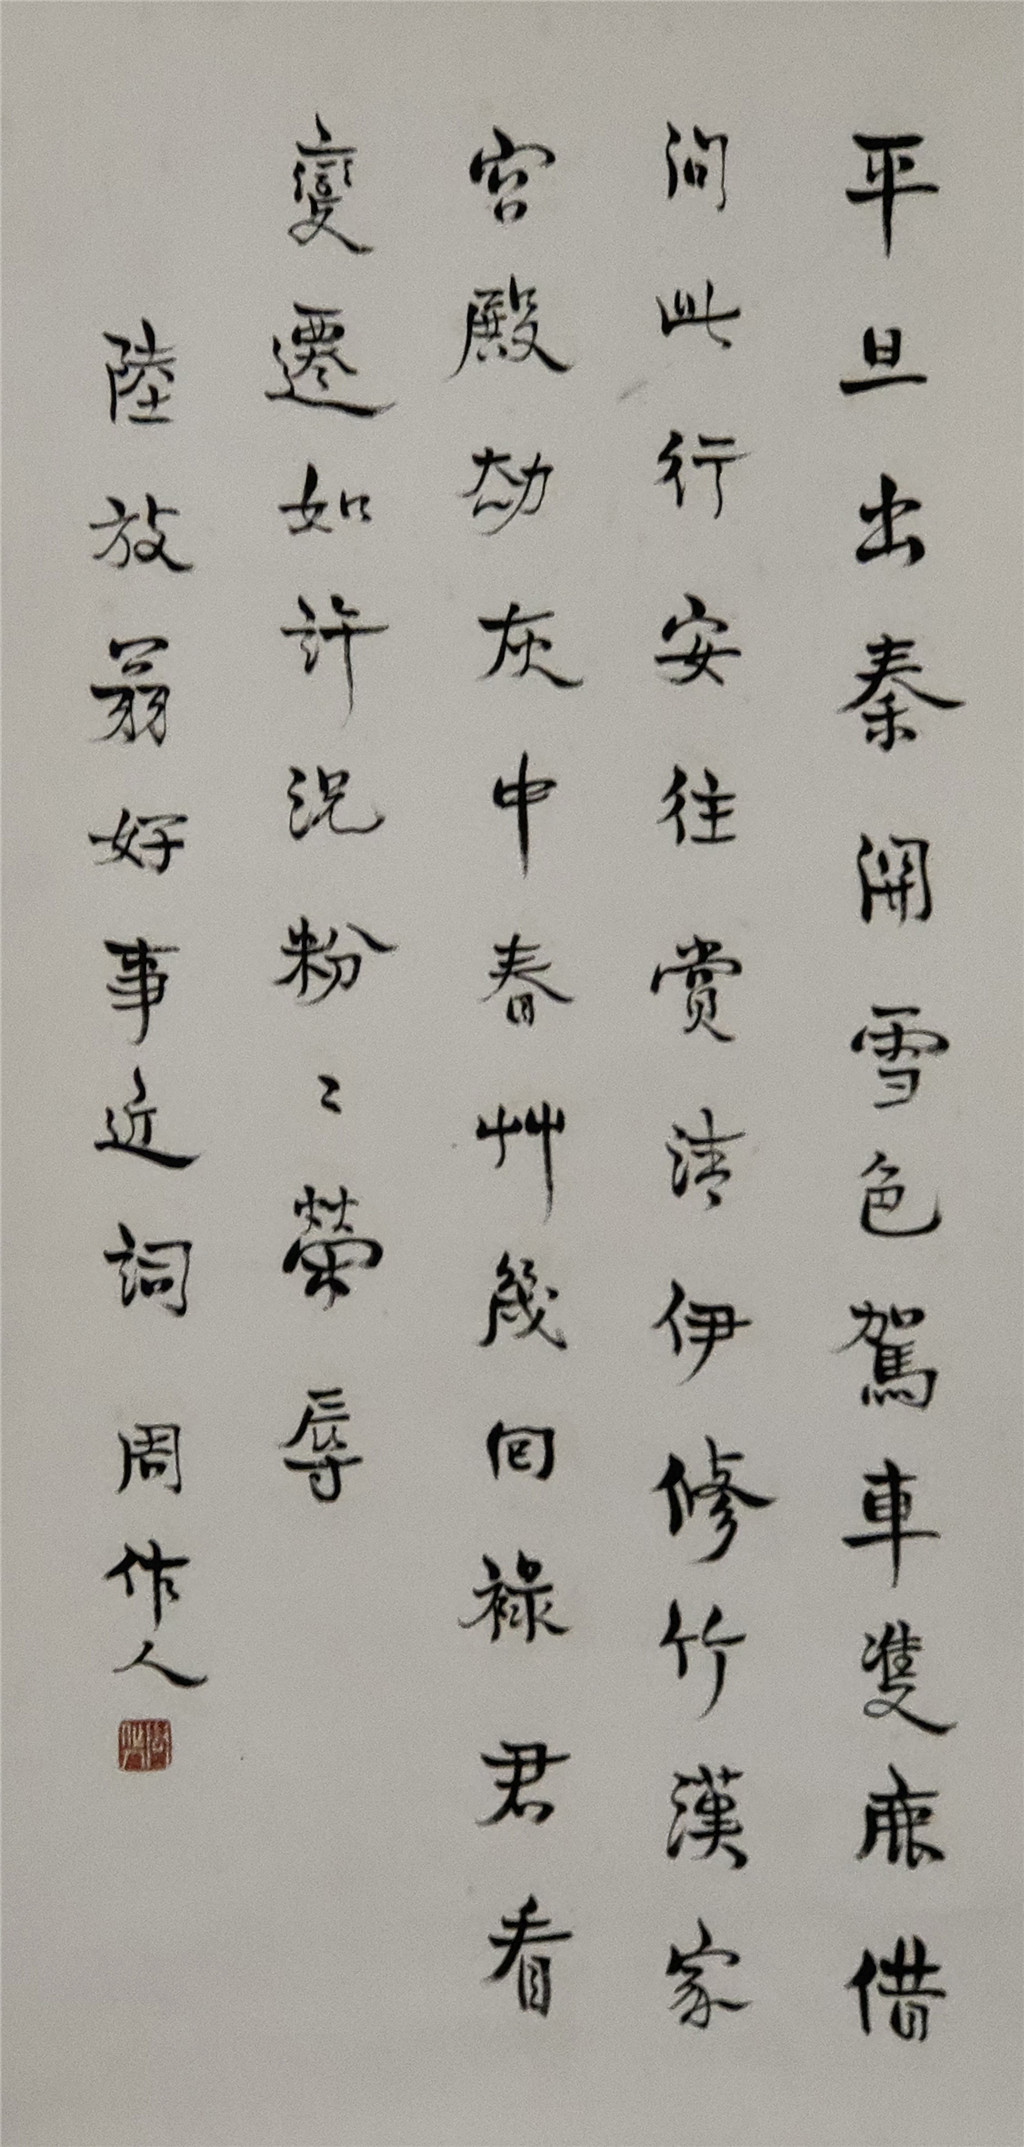 平旦出秦開雪色駕車隻鹿借
問此行安往賞清伊修竹漢家
宮殿劫灰中春艸幾回祿君看
變遷如許況粉〻榮辱
陸放翁好事近詞 周作人